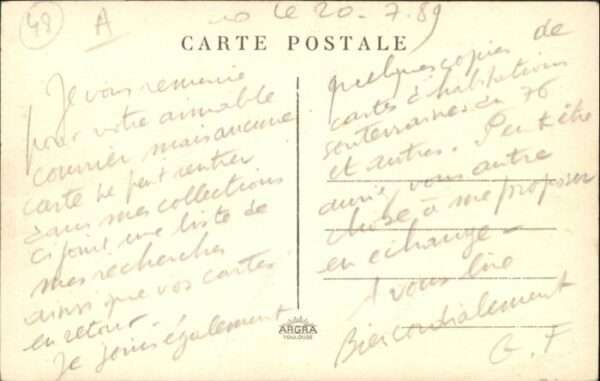 48
A
le 20-7.89
CARTE POSTALE
Je vous remercie
pour votre aimable
courrier mais aucune
carte ne peut rentrer
dans mes collections
ci joint une liste de
mes recherches
ainsi que vos cartes
en retour
Je joins également
quelques copies de
cartes d'habitations
souterraines du 76
et autres. Peut être
auriez vous autre
chose à me proposer
en échange -
A vous lire
Bien cordialement
G. F
ARGRA
TOULOUSE